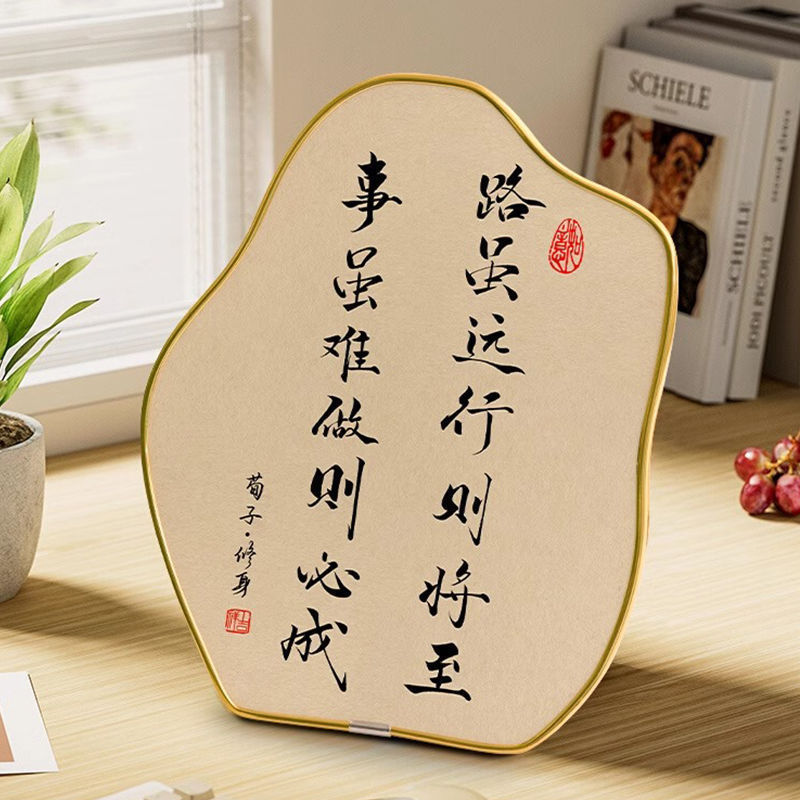 路虽远行则将至
事虽难做则必成
荀子·修身
如意
SCHIELE
SCHIELE
JODI PICOULT
second glance